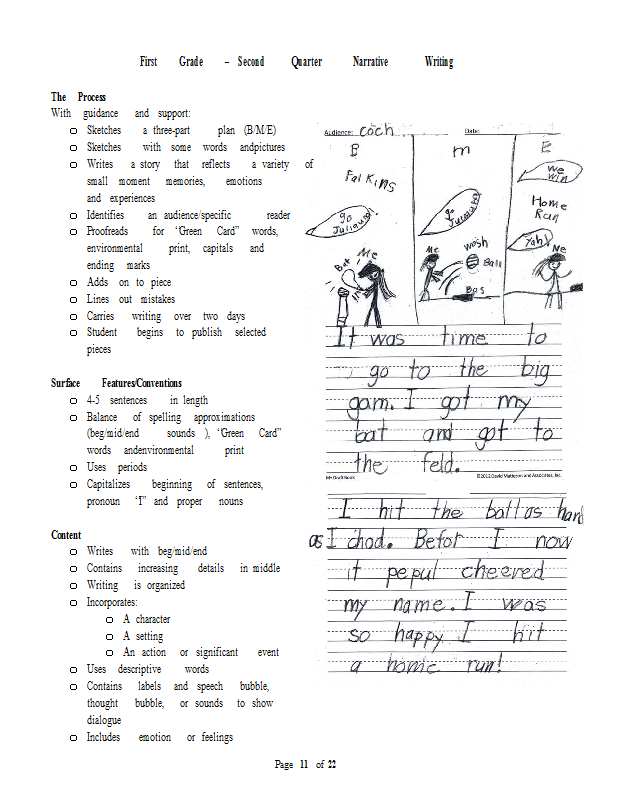 First Grade – Second Quarter Narrative Writing
The Process
With guidance and support:
o Sketches a three-part plan (B/M/E)
o Sketches with some words andpictures
o Writes a story that reflects a variety of
small moment memories, emotions
and experiences
o Identifies an audience/specific reader
o Proofreads for "Green Card" words,
environmental print, capitals and
ending marks
o Adds on to piece
o Lines out mistakes
o Carries writing over two days
o Student begins to publish selected
pieces
Surface Features/Conventions
o 4-5 sentences in length
o Balance of spelling approximations
(beg/mid/end sounds ), "Green Card"
words andenvironmental print
o Uses periods
o Capitalizes beginning of sentences,
pronoun "I" and proper nouns
Content
o Writes with beg/mid/end
o Contains increasing details in middle
o Writing is organized
o Incorporates:
o A character
o A setting
o An action or significant event
o Uses descriptive words
o Contains labels and speech bubble,
thought bubble, or sounds to show
dialogue
o Includes emotion or feelings
Audience: coch Date:
B m E
Fal KINS
go
we
win
Home
Run
go
Yah!
Bat Me
Me
wosh
Ball
Bas
Me
It was time to
go to the big
gam. I got my
bat and got to
the feld.
My Draft Book ©2012 David Matteson and Associates, Inc.
I hit the ball as hard
as I chod. Befor I now
it pepul cheered
my name. I was
so happy I hit
a home run!
Page 11 of 22